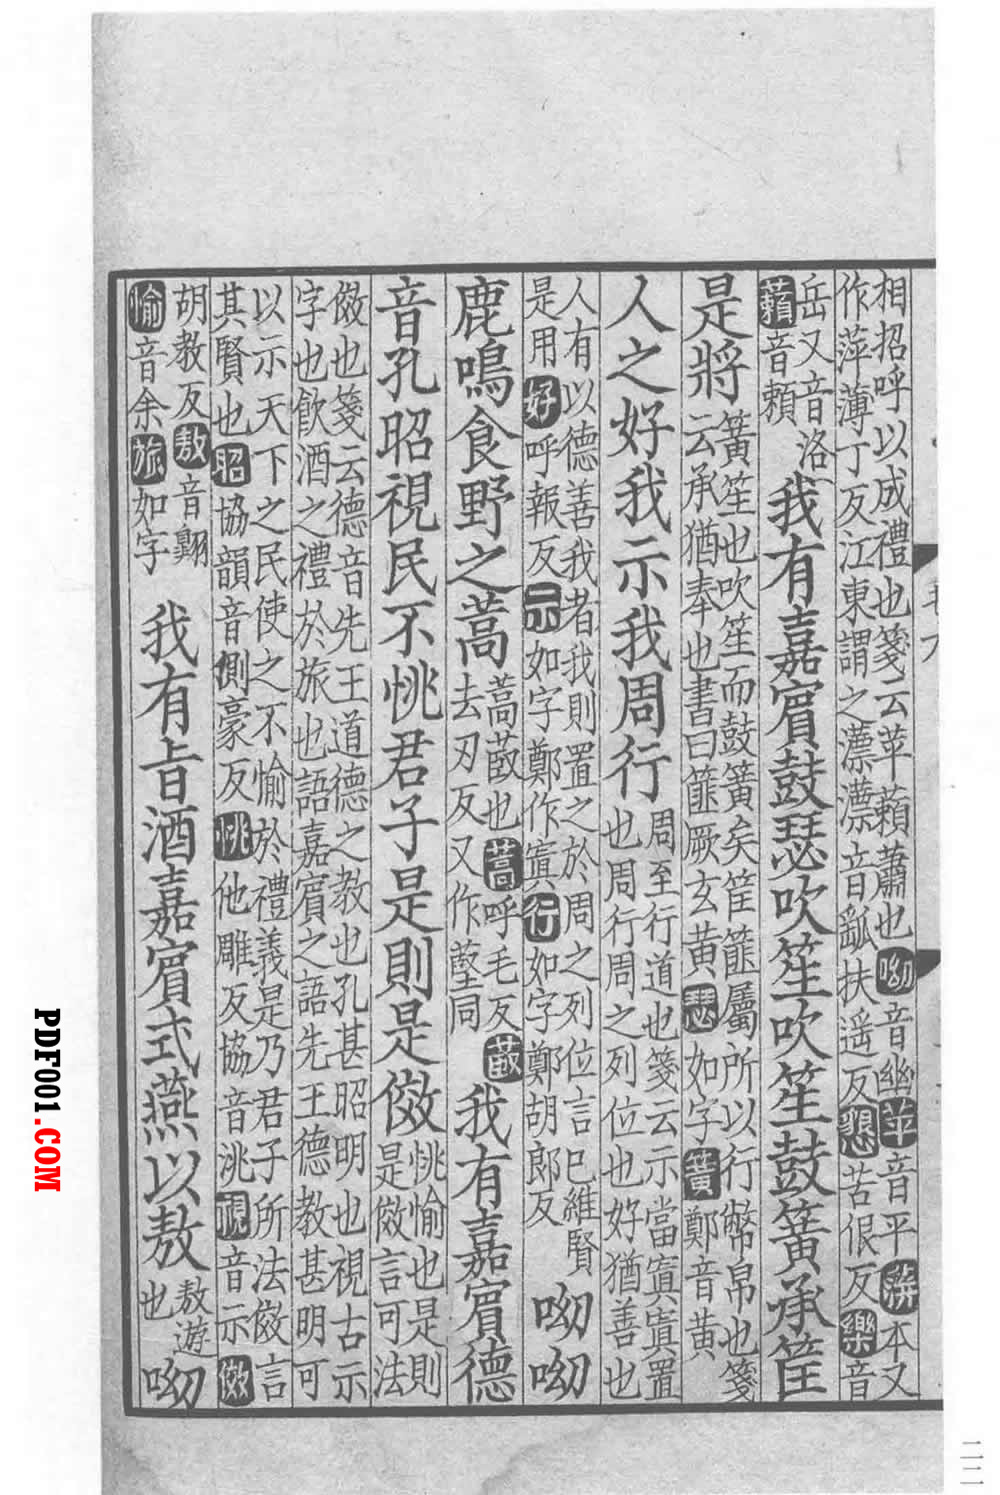 相招呼以成禮也箋云苹藾蕭也呦音幽苹音平蓱本又
作萍薄丁反江東謂之薸薸音瓢扶遥反懇苦佷反樂音
岳又音洛
藾音頼
我有嘉賔鼓瑟吹笙吹笙鼓簧承筐
是將
簧笙也吹笙而鼓簧矣筐篚屬所以行幣帛也箋
云承猶奉也書曰篚厥玄黄瑟如字簧鄭音黄
人之好我示我周行
周至行道也箋云示當寘寘置
也周行周之列位也好猶善也
人有以德善我者我則置之於周之列位言已維賢
是用好呼報反示如字鄭作寘行如字鄭胡郎反
呦呦
鹿鳴食野之蒿
蒿菣也蒿呼毛反菣
去刃反又作藖同
我有嘉賔德
音孔昭視民不恌君子是則是傚
恌愉也是則
是傚言可法
傚也箋云德音先王道德之教也孔甚昭明也視古示
字也飲酒之禮於旅也語嘉賔之語先王德教甚明可
以示天下之民使之不愉於禮義是乃君子所法傚言
其賢也昭協韻音側豪反恌他雕反協音洮視音示傚
胡教反敖音翺
愉音余旅如字
我有㫖酒嘉賔式燕以敖
敖遊
也
呦
卷六
二二
PDF001.COM